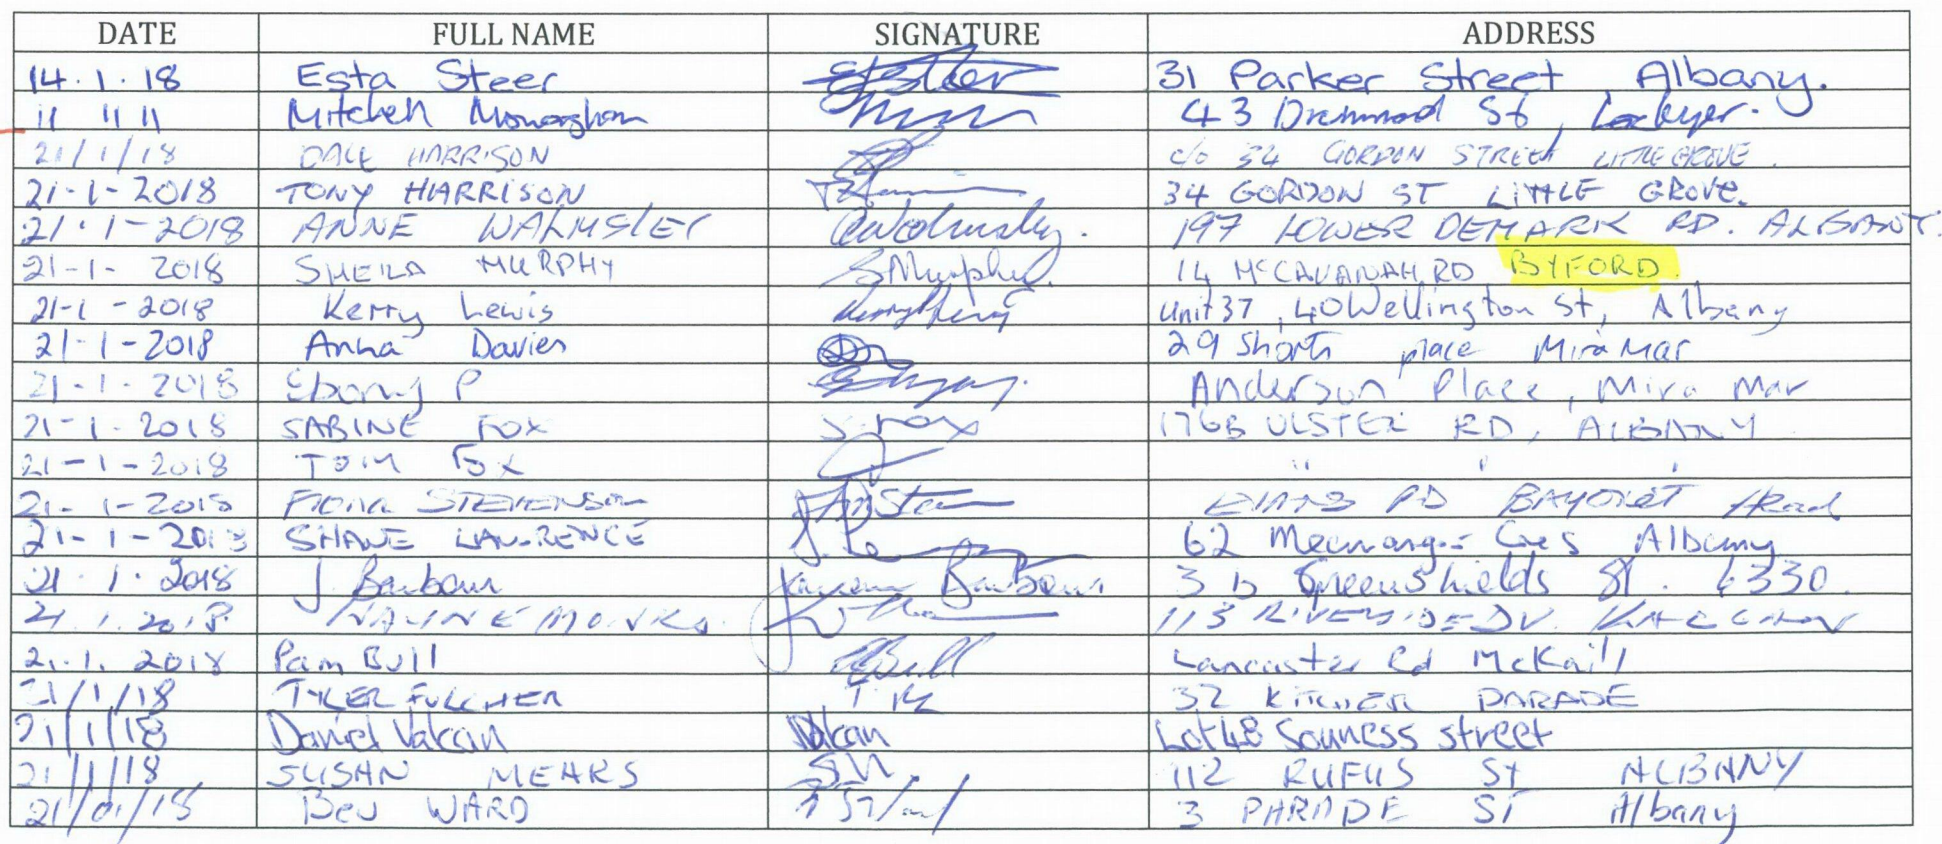 DATE FULL NAME SIGNATURE ADDRESS
14.1.18 Esta Steer ESteer 31 Parker Street, Albany.
11 11 11 Mitchell Monaghan 43 Drummond St, Lockyer.
21/1/18 DALE HARRISON c/o 34 GORDON STREET LITTLE GROVE.
21-1-2018 TONY HARRISON 34 GORDON ST LITTLE GROVE.
21.1-2018 ANNE WALMSLEY AWalmsley. 197 LOWER DEMARK RD. ALBANY.
21-1-2018 SHEILA MURPHY SMurphy. 14 McCAVANAH RD BYFORD.
21-1-2018 Kerry Lewis Unit 37, 40 Wellington St, Albany
21-1-2018 Anna Davies 29 Shorts place Mira Mar
21-1-2018 Ebony P Anderson Place, Mira Mar
21-1-2018 SABINE FOX S.Fox 176B ULSTER RD, ALBANY
21-1-2018 TOM FOX " " "
21-1-2018 FIONA STEVENSON EVANS RD BAYONET Head
21-1-2018 SHANE LAWRENCE 62 Cres Albany
21.1.2018 J. Barbour Barbour 3 b Greenshields St. 6330.
21.1.2018. MONKS. 113 RIVERSIDE DV. KALGAN
21.1.2018 Pam Bull Bull Lancaster Rd McKail
21/1/18 TYLER FULCHER 32 KITCHER PARADE
21/1/18 Daniel Vakcan Lot 48 Souness street
21/1/18 SUSAN MEARS SM 112 RUFUS ST ALBANY
21/01/18 Bev WARD 3 PARADE ST Albany